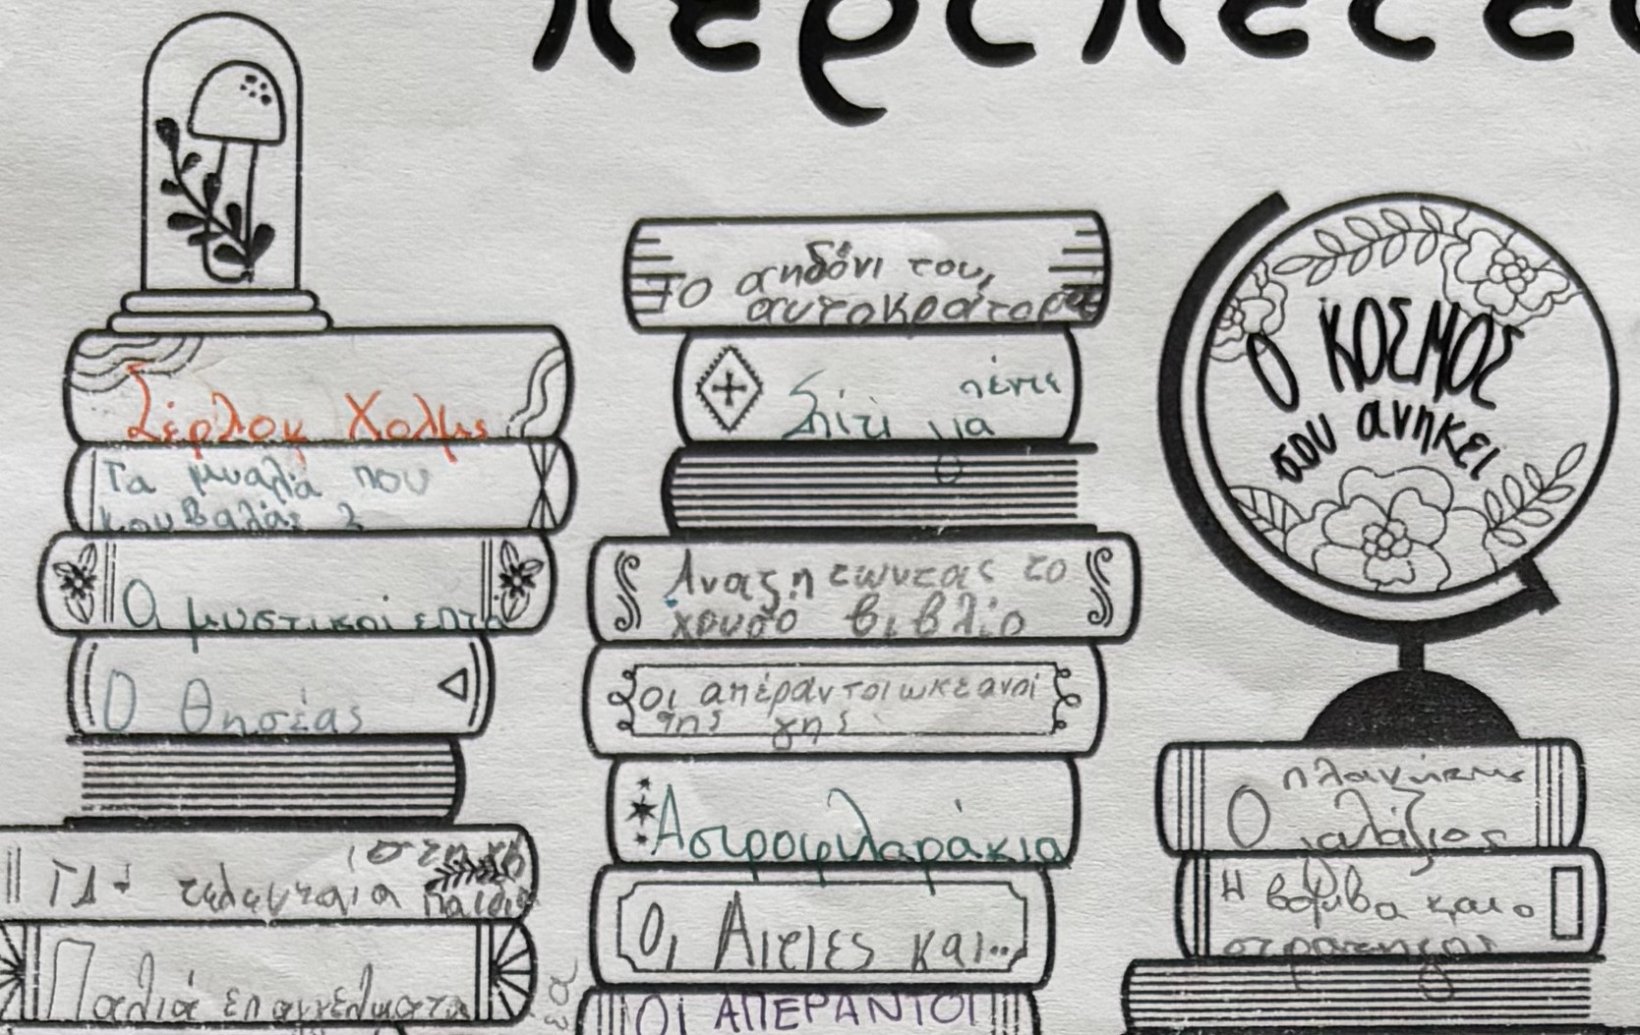 περιπετε
Σέρλοκ Χολμς
Τα μυαλά που
κουβαλάς
Οι μυστικοί επτά
Ο Θησέας
τελευταία
Παλιά επαγγέλματα
Το αηδόνι του,
αυτοκράτορα
Σπίτι για πέντε
Αναζητώντας το
χρυσό βιβλίο
οι απέραντοι ωκεανοί
της γης
Αστροφιλαράκια
Οι Αιτιες και...
ΟΙ ΑΠΕΡΑΝΤΟΙ
Ο ΚΟΣΜΟΣ
σου ανηκει
πλανήτης
Ο γαλάζιος
Η βόμβα και ο
στρατηγός